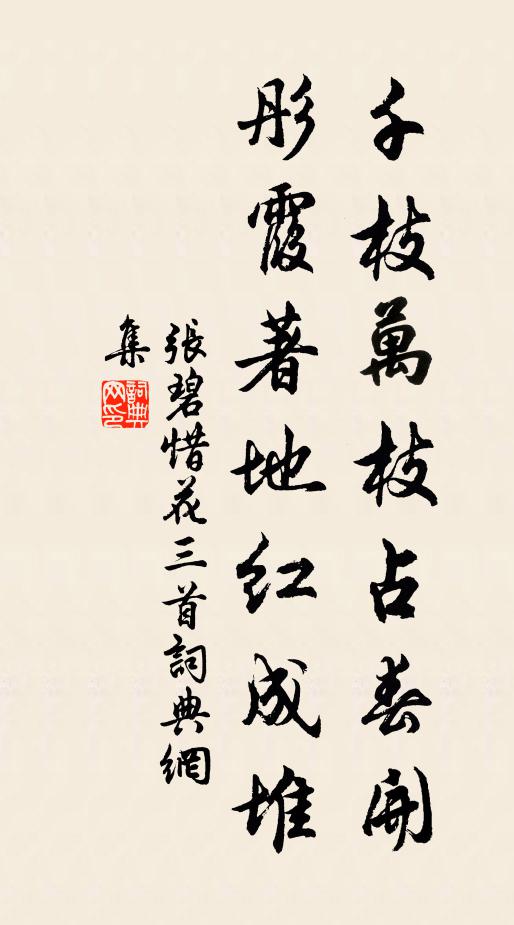 千枝萬枝占春開
彤霞著地红成堆
張碧惜花三首詞典網
集
詞典
网印